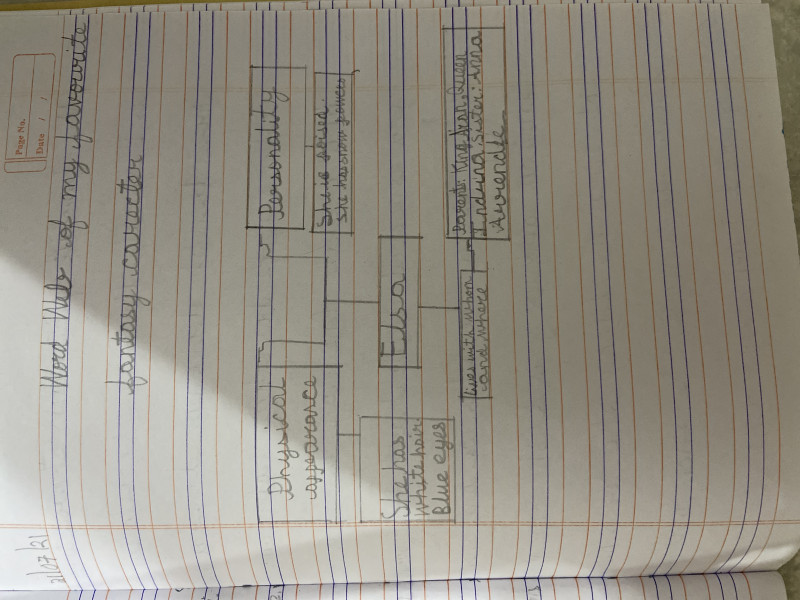 Page No.
Date / /
21/07/21
Word Web of my favourite
fantasy carecter
Physical
appearance
Personality
She is poised
She has snow powers
She has
white hair
Blue eyes
Elsa
lives with whom
and where
Parents: King Agnarr, Queen
Induna, Sister: Anna
Avrendle